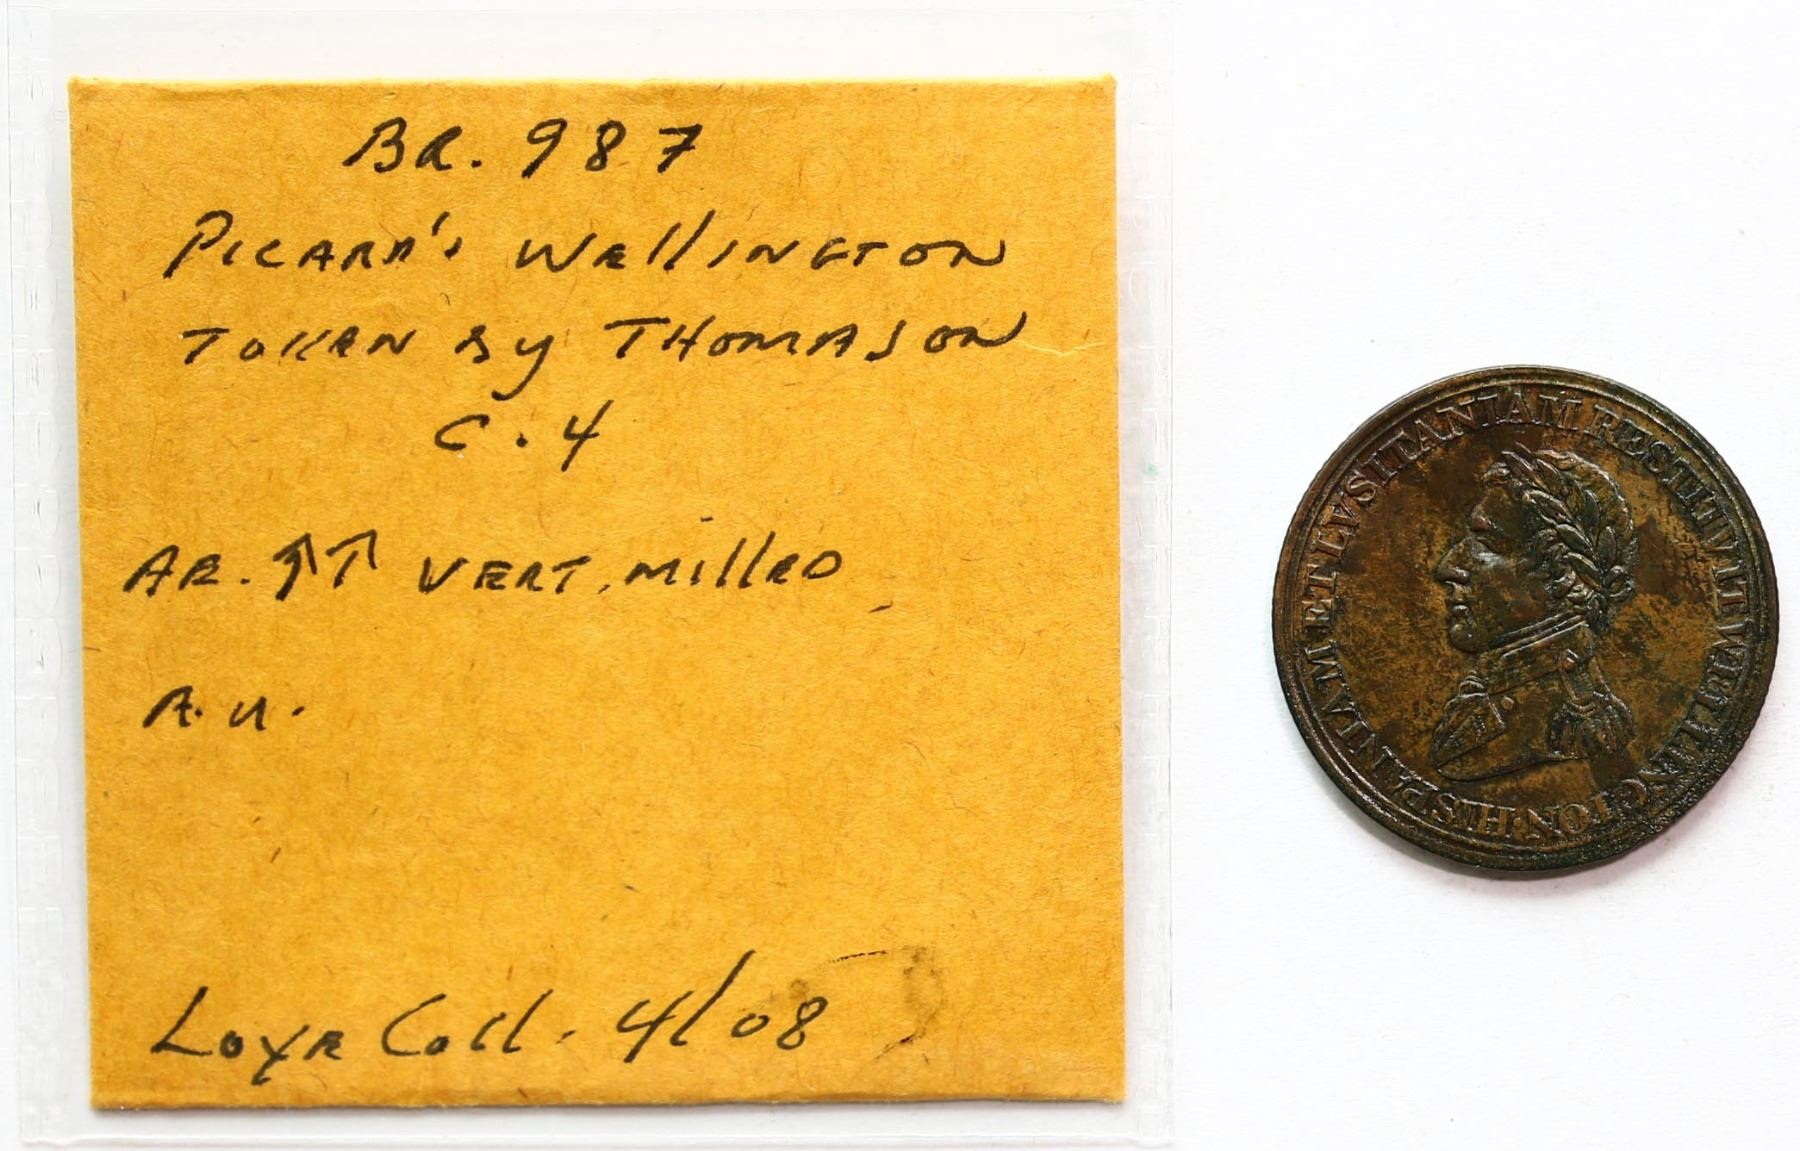 BR. 987
PICARD'S WELLINGTON
TOKEN BY THOMASON
C. 4
AE. ↑↑ VERT. MILLED
A.U.
LOYE COLL. 4/08
HISPANIAM ET LVSITANIAM RESTITVIT WELLINGTON